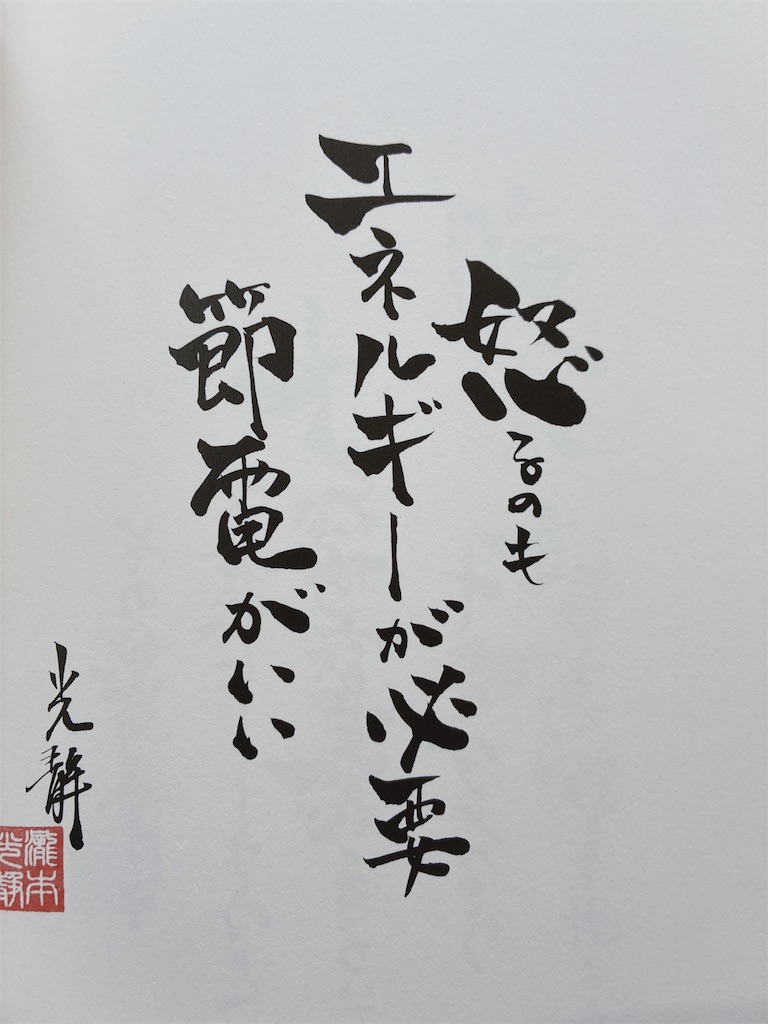 怒るのも
エネルギーが必要
節電がいい
光静
瀧本
光静